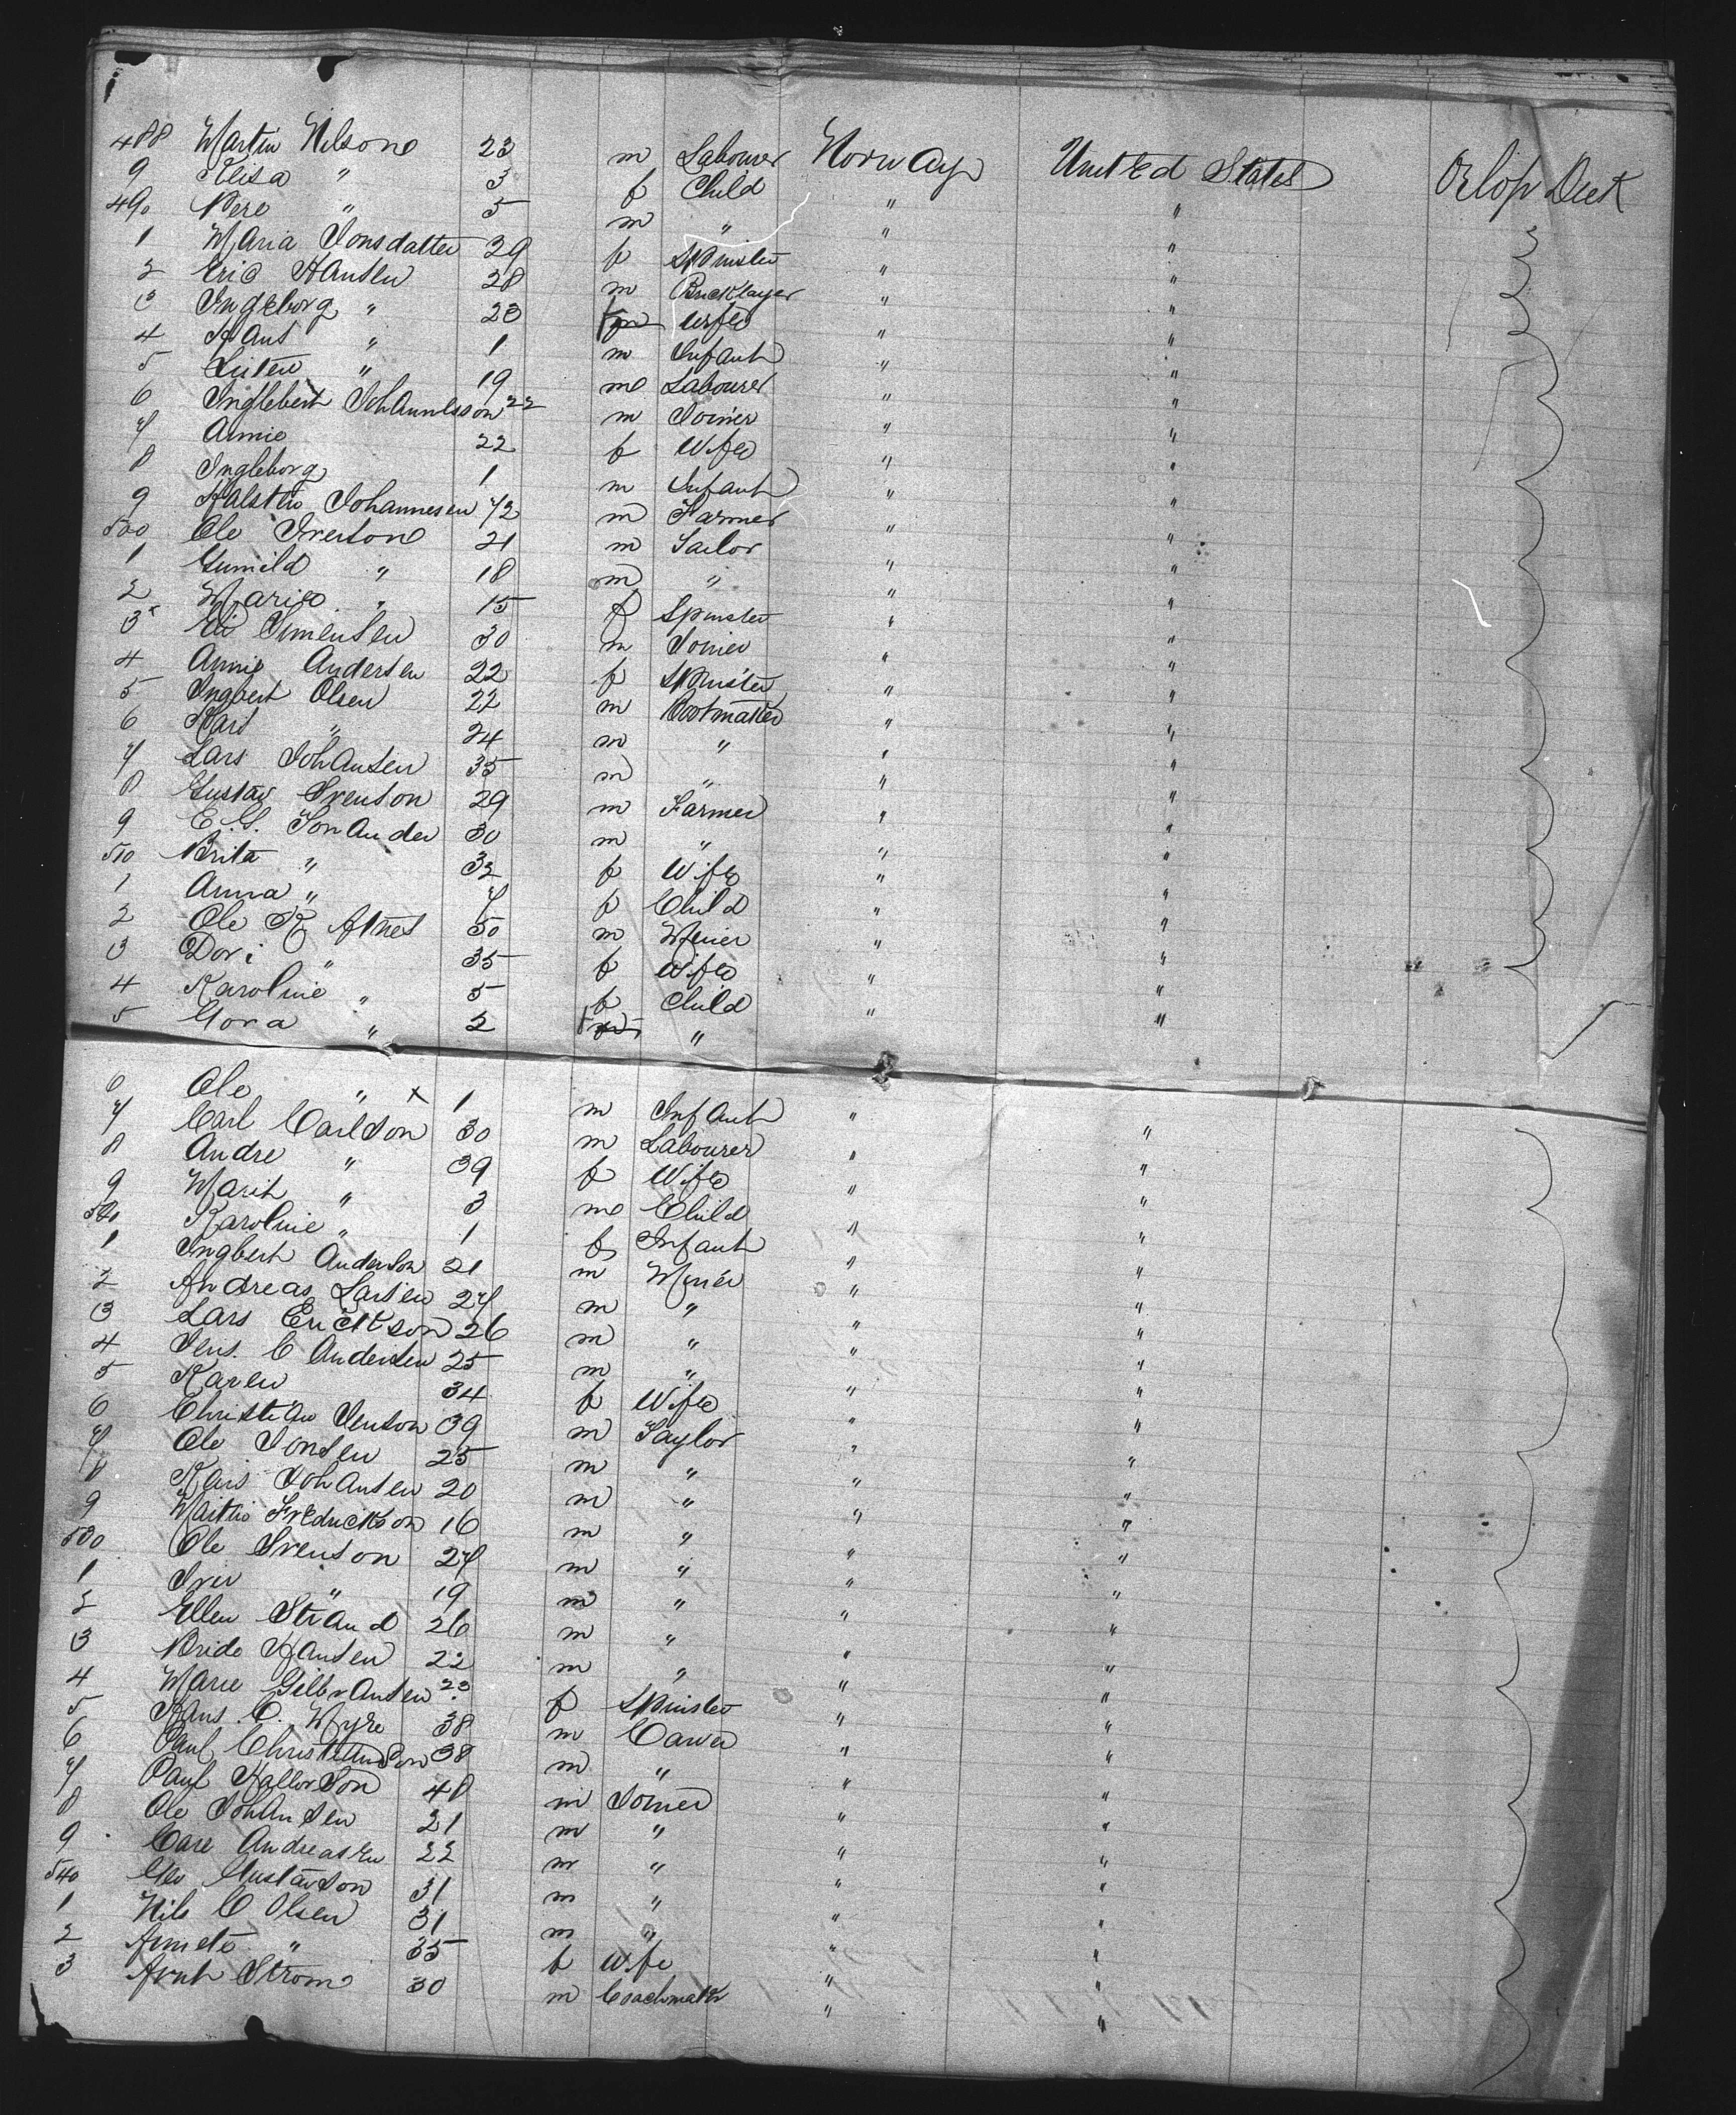 488 Martin Nilson 23 m Labourer Norway United States Orlop Deck
9 Elisa " 3 f Child " "
490 Pere " 5 m " " "
1 Maria Jonsdatter 29 f Spinster " "
2 Eric Hansen 28 m Bricklayer " "
3 Ingeborg " 23 f Wife " "
4 Hans " 1 m Infant " "
5 " 19 m Labourer " "
6 Inglebert Johannesson 22 m Joiner " "
7 Annie 22 f Wife " "
8 Ingleborg 1 m Infant " "
9 Halsten Johannesen 42 m Farmer " "
500 Ole Iverson 21 m Sailor " "
1 Gunild " 18 m " " "
2 Marie " 15 f Spinster " "
3 Eli Simensen 30 m Joiner " "
4 Annie Andersen 22 f Spinster " "
5 Ingbert Olsen 22 m Bootmaker " "
6 Karl " 24 m " " "
7 Lars Johansen 35 m " " "
8 Gustav Svenson 29 m Farmer " "
9 E. G. Sonander 30 m " " "
510 Brita " 32 f Wife " "
1 Anna " 7 f Child " "
2 Ole K 50 m Miner " "
3 Dori " 35 f Wife " "
4 Karoline " 5 f Child " "
5 Gora " 2 f " " "
6 Ole " x 1 m Infant " "
7 Carl Carlson 30 m Labourer " "
8 Andre " 39 f Wife " "
9 Marit " 3 m Child " "
520 Karoline " 1 f Infant " "
1 Ingbert Anderson 21 m Miner " "
2 Andreas Larsen 27 m " " "
3 Lars Erickson 26 m " " "
4 Jens. C Andersen 25 m " " "
5 Karen 34 f Wife " "
6 Christian Jenson 39 m Taylor " "
7 Ole Jonsen 25 m " " "
8 Johansen 20 m " " "
9 Martin Fredrickson 16 m " " "
530 Ole Svenson 27 m " " "
1 Iver " 19 m " " "
2 Ellen Strand 26 m " " "
3 Hansen 22 m " " "
4 Marie Gilbransen 23 f Spinster " "
5 Hans. C. Myre 38 m Carver " "
6 Paul Christianson 38 m " " "
7 Paul Hallorson 48 m Joiner " "
8 Ole Johansen 21 m " " "
9 Carl Andreasen 22 m " " "
540 Gustavson 31 m " " "
1 Nils C Olsen 31 m " " "
2 " 35 f Wife " "
3 Strom 30 m Coachmaker " "